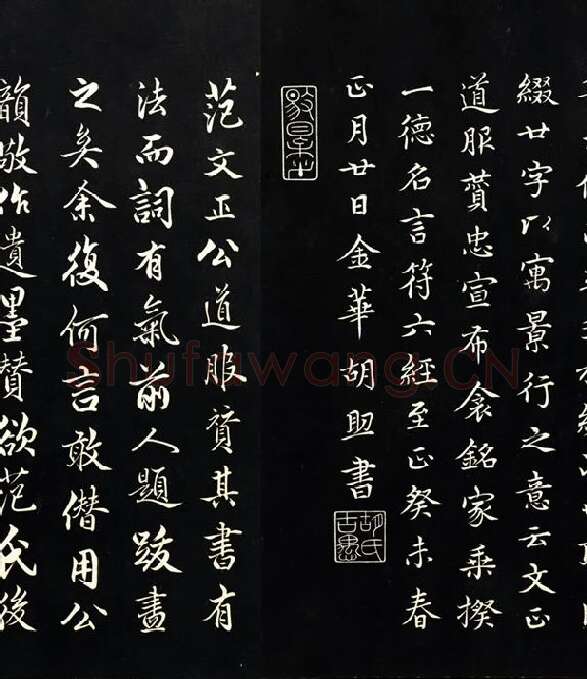 綴廿字以寓景行之意云文正
道服贊忠宣布衾銘家乘揆
一德名言符六經至正癸未春
正月廿日金華胡助書
胡氏古愚
范文正公道服贊其書有
法而詞有氣前人題跋盡
之矣余復何言敢僭用公
韻敬作遺墨贊欲范氏後
Shufawang.CN